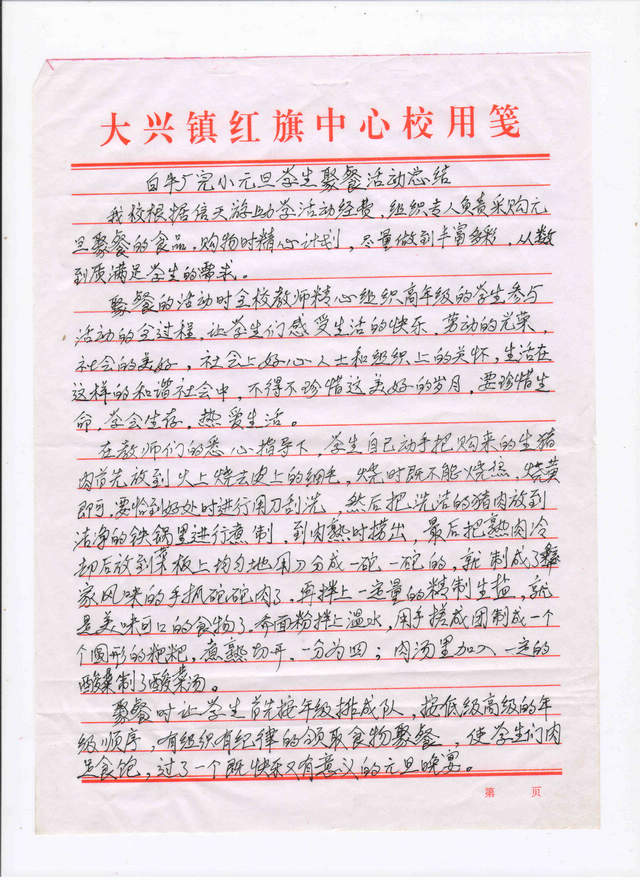 大兴镇红旗中心校用笺
白牛厂完小元旦学生聚餐活动总结
我校根据信天游助学活动经费，组织专人负责采购元
旦聚餐的食品。购物时精心计划，尽量做到丰富多彩，从数
到质满足学生的需求。
聚餐的活动时全校教师精心组织高年级的学生参与
活动的全过程，让学生们感受生活的快乐、劳动的光荣，
社会的美好，社会上好心人士和组织上的关怀，生活在
这样的和谐社会中，不得不珍惜这美好的岁月，要珍惜生
命，学会生存，热爱生活。
在教师们的悉心指导下，学生自己动手把购来的生猪
肉首先放到火上烧去皮上的细毛，烧时既不能烧糊，烧黄
即可，要恰到好处时进行用刀刮洗，然后把洗洁的猪肉放到
洁净的铁锅里进行煮制，到肉熟时捞出，最后把熟肉冷
却后放到菜板上均匀地用刀分成一砣一砣的，就制成了彝
家风味的手抓砣砣肉了。再拌上一定量的精制生盐，就
是美味可口的食物了。荞面粉拌上温水，用手搓成团制成一个
个圆形的粑粑，煮熟切开，一分为四；肉汤里加入一定的
酸菜制了酸菜汤。
聚餐时让学生首先按年级排成队，按低级高级的年
级顺序，有组织有纪律的领取食物聚餐，使学生们肉
足食饱，过了一个既快乐又有意义的元旦晚宴。
第 页